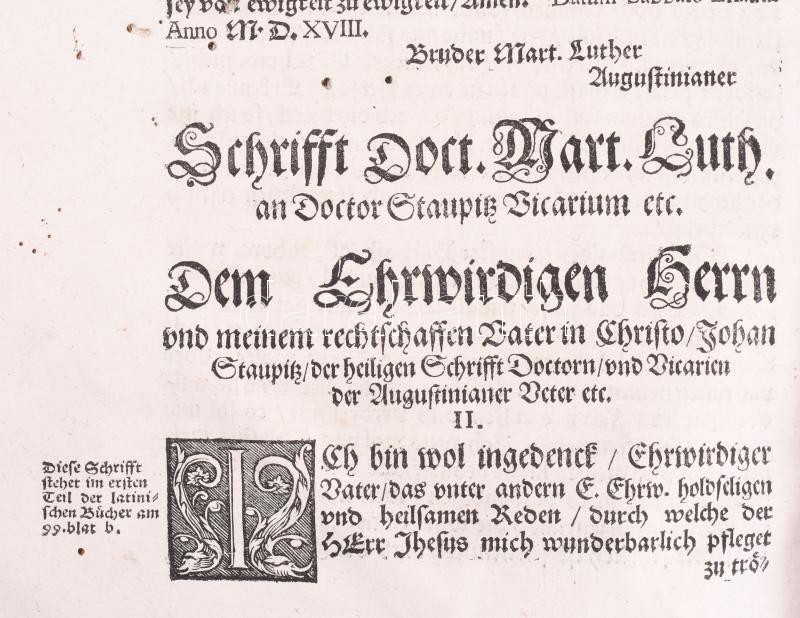 sey von ewigkeit zu ewigkeit/Amen.
Anno M. D. XVIII.
Bruder Mart. Luther
Augustinianer
Schrifft Doct. Mart. Luth.
an Doctor Staupitz Vicarium etc.
Dem Ehrwirdigen Herrn
vnd meinem rechtschaffen Vater in Christo/Johan
Staupitz/der heiligen Schrifft Doctorn/vnd Vicarien
der Augustinianer Veter etc.
II.
ICh bin wol ingedenck / Ehrwirdiger
Vater/das vnter andern E. Ehrw. holdseligen
vnd heilsamen Reden / durch welche der
HErr Jhesus mich wunderbarlich pfleget
zu trö-
Diese Schrifft
stehet im ersten
Teil der latini-
schen Bücher am
99.blat b.